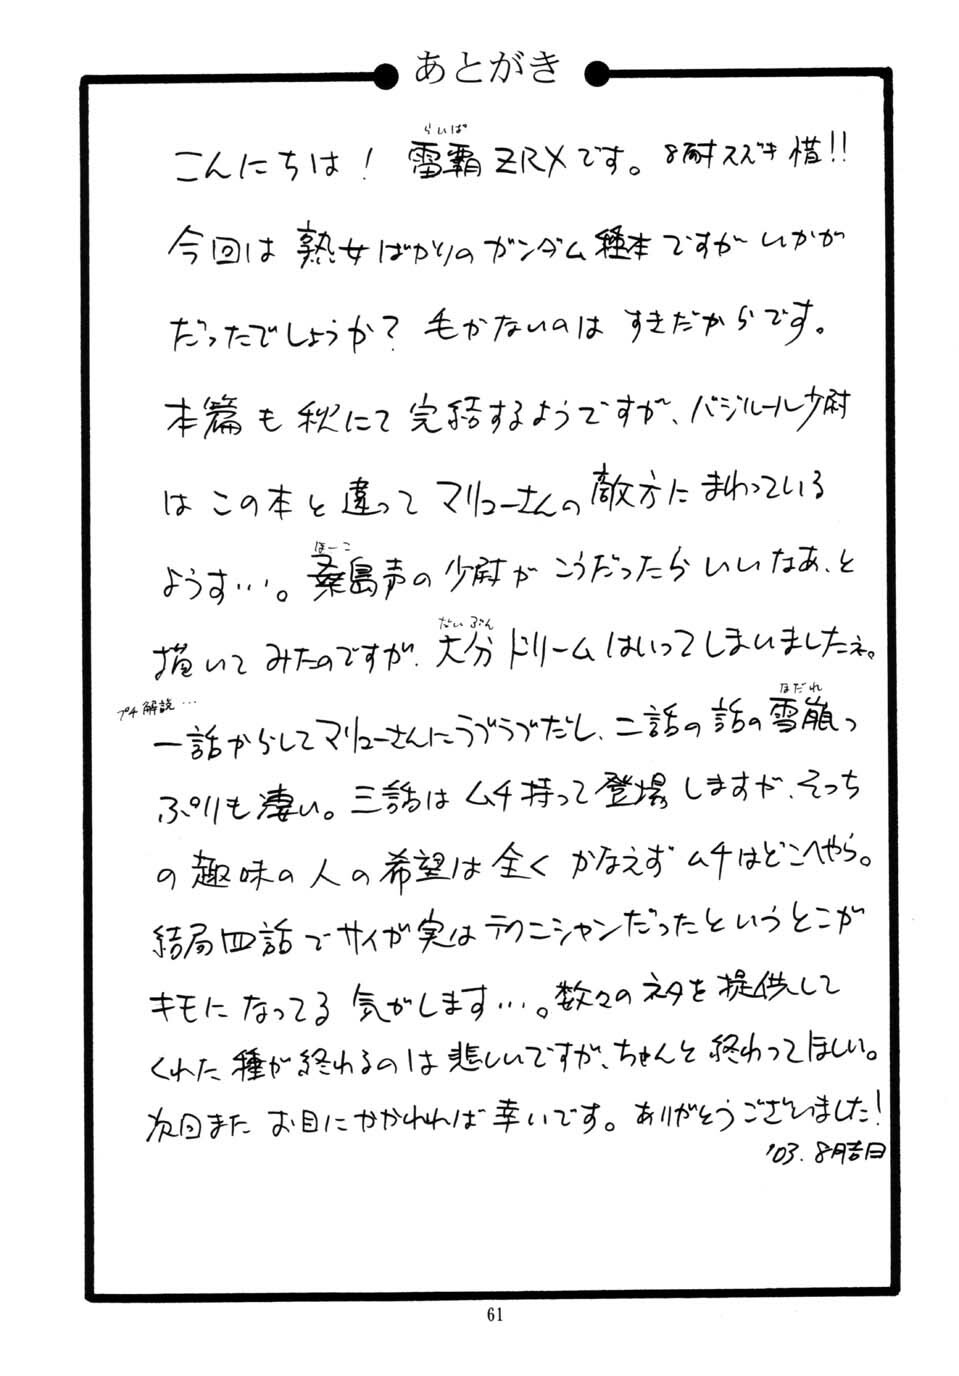 あとがき
らいぱ
こんにちは! 雷覇ZRXです。8耐スズキ惜!!
今回は熟女ばかりのガンダム種本ですがいかが
だったでしょうか?毛がないのはすきだからです。
本篇も秋にて完結するようですが、バジルール少尉
はこの本と違ってマリューさんの敵方にまわっている
ほーこ
ようす…。桑島声の少尉がこうだったらいいなあ、と
だいぶん
描いてみたのですが、大分ドリームはいってしまいましたネ。
プチ解説…
なだれ
一話からしてマリューさんにラブラブだし、二話の話の雪崩っ
ぷりも凄い。三話はムチ持って登場しますが、そっち
の趣味の人の希望は全くかなえずムチはどこへやら。
結局四話でサイが実はテクニシャンだったというとこが
キモになってる気がします…。数々のネタを提供して
くれた種が終わるのは悲しいですが、ちゃんと終わってほしい。
次回またお目にかかれれば幸いです。ありがとうございました!
'03.8月吉日
61